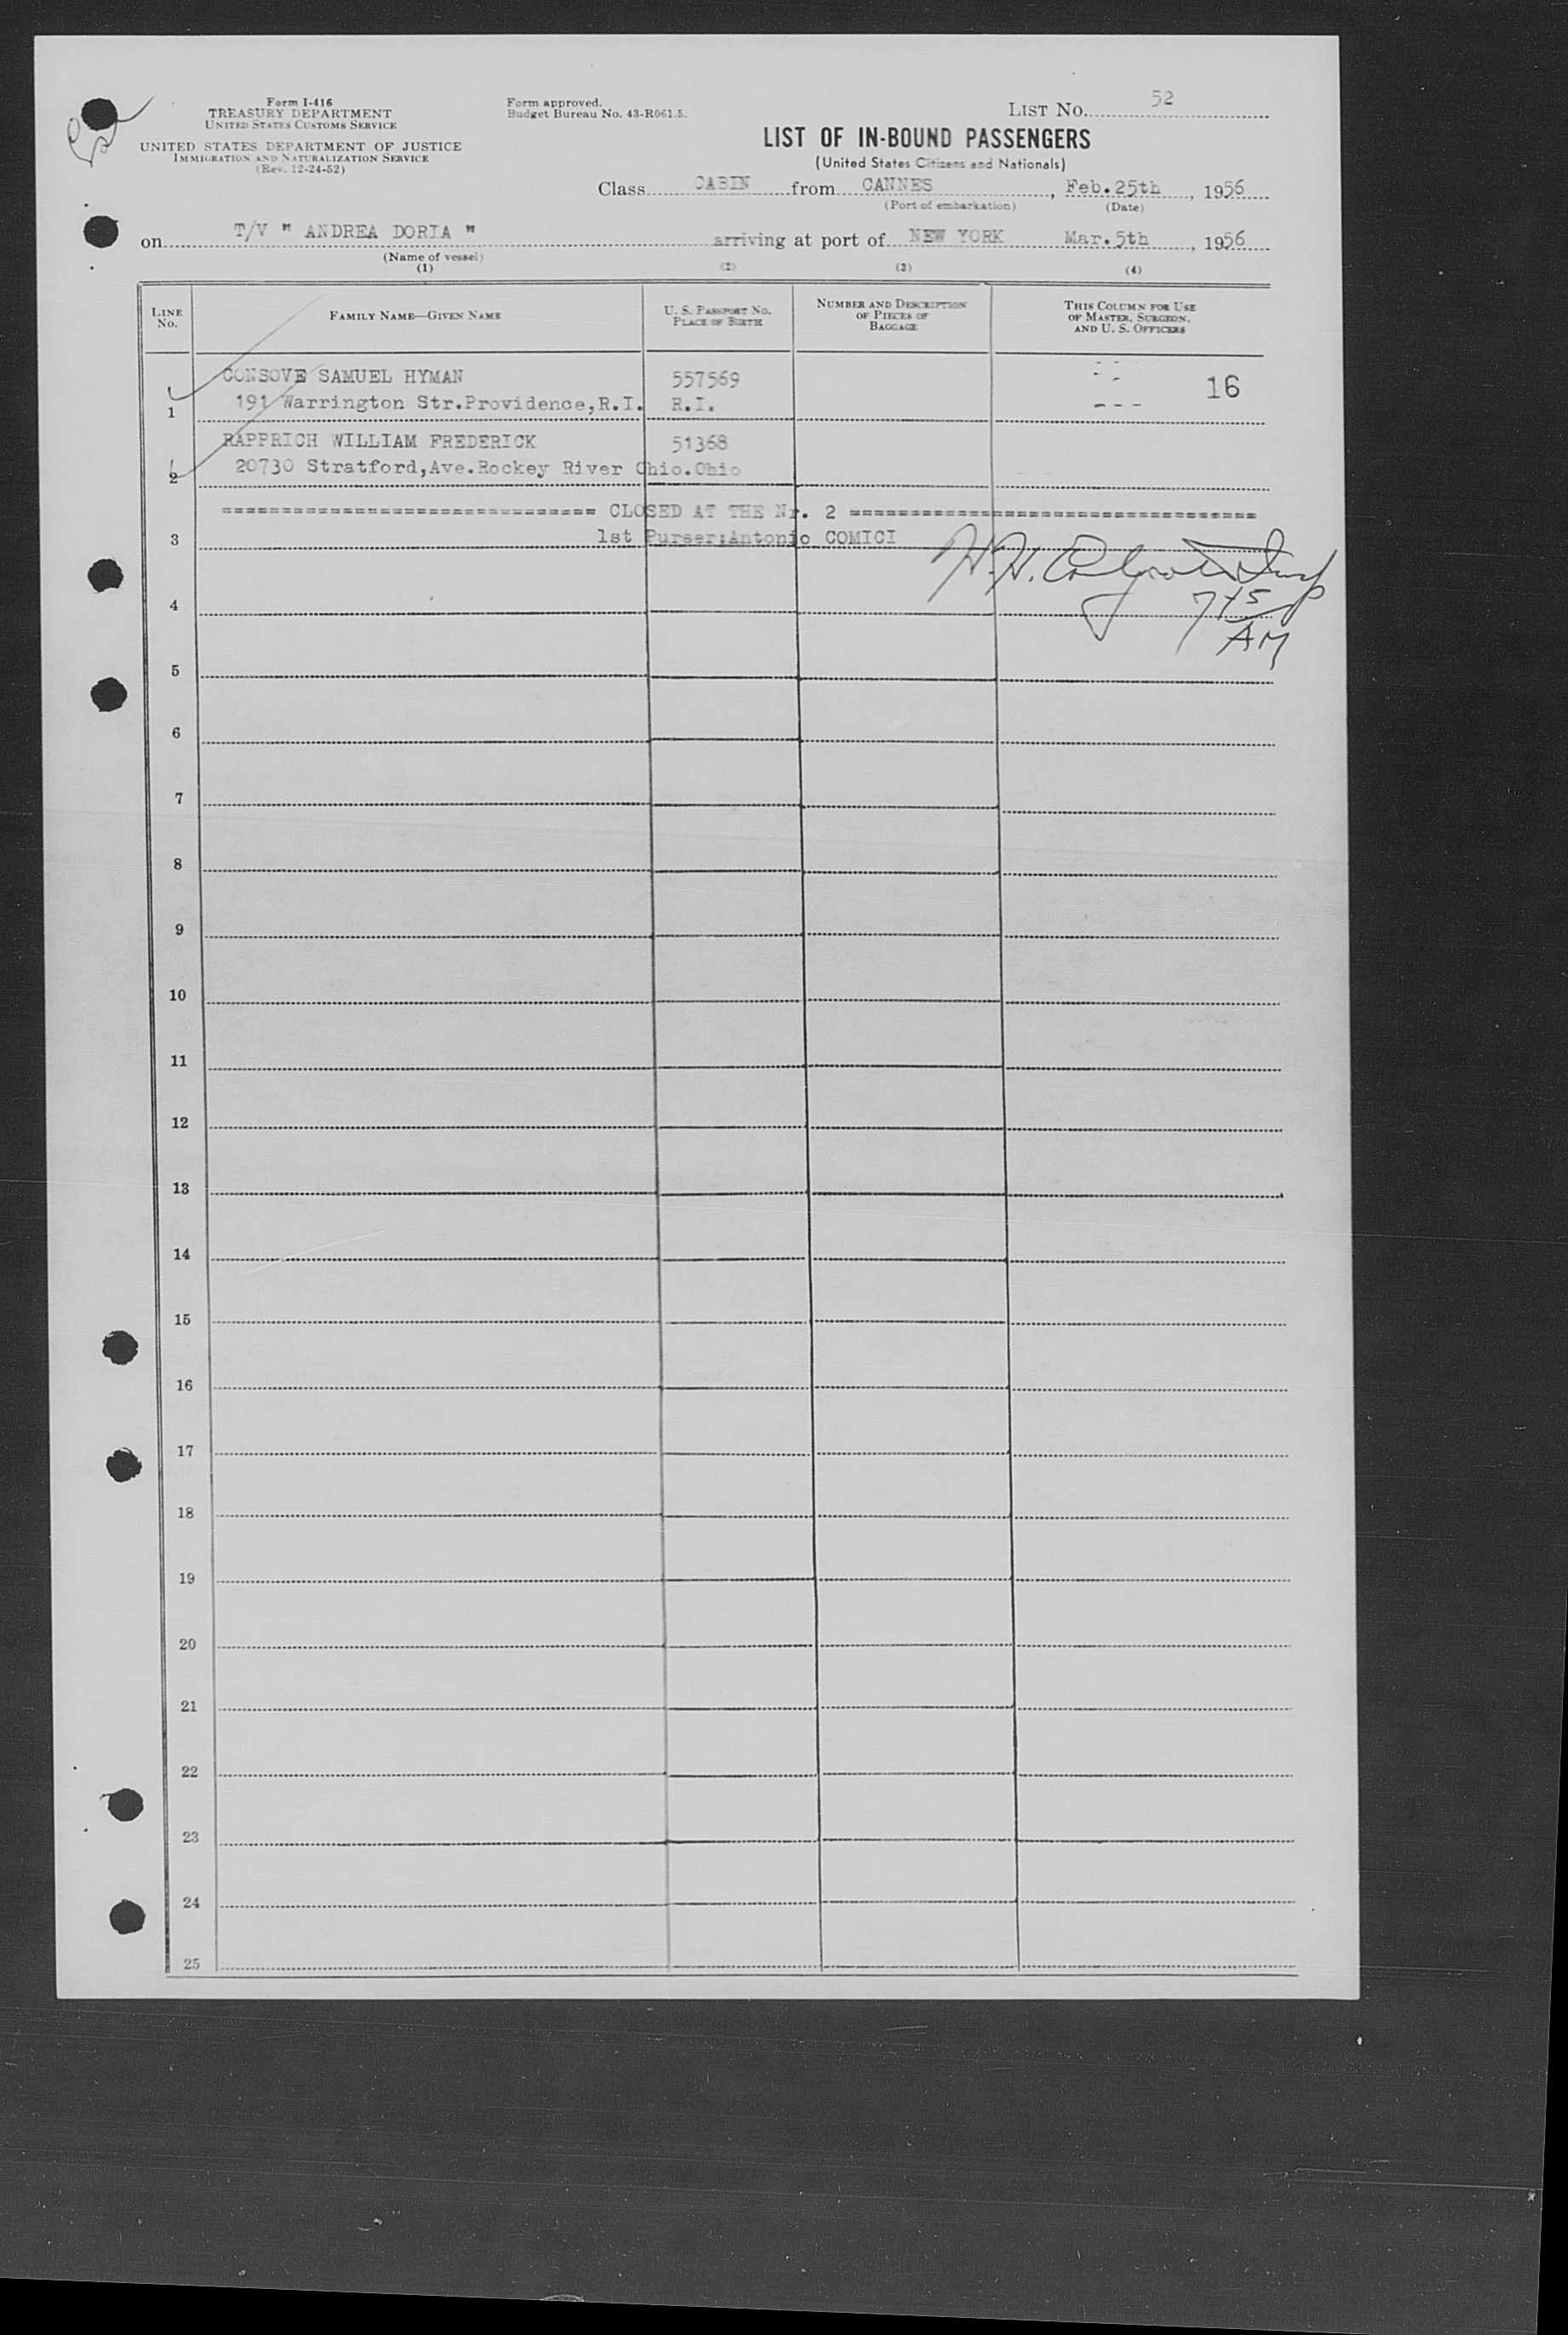 Form I-416
TREASURY DEPARTMENT
UNITED STATES CUSTOMS SERVICE
UNITED STATES DEPARTMENT OF JUSTICE
IMMIGRATION AND NATURALIZATION SERVICE
(Rev. 12-24-52)
Form approved.
Budget Bureau No. 43-R061.5.
LIST No. 52
LIST OF IN-BOUND PASSENGERS
(United States Citizens and Nationals)
Class CABIN from CANNES, Feb.25th, 1956
(Port of embarkation) (Date)
on T/V " ANDREA DORIA " arriving at port of NEW YORK Mar.5th, 1956
(Name of vessel)
(1) (2) (3) (4)
LINE No. FAMILY NAME—GIVEN NAME U. S. PASSPORT No. PLACE OF BIRTH NUMBER AND DESCRIPTION OF PIECES OF BAGGAGE THIS COLUMN FOR USE OF MASTER, SURGEON, AND U. S. OFFICERS
CONSOVE SAMUEL HYMAN 557569 16
1 191 Warrington Str.Providence,R.I. R.I.
RAPPRICH WILLIAM FREDERICK 51368
2 20730 Stratford,Ave.Rockey River Ohio.Ohio
=============================== CLOSED AT THE Nr. 2 ==================================
3 1st Purser:Antonio COMICI
H.H.
745
AM
4
5
6
7
8
9
10
11
12
13
14
15
16
17
18
19
20
21
22
23
24
25